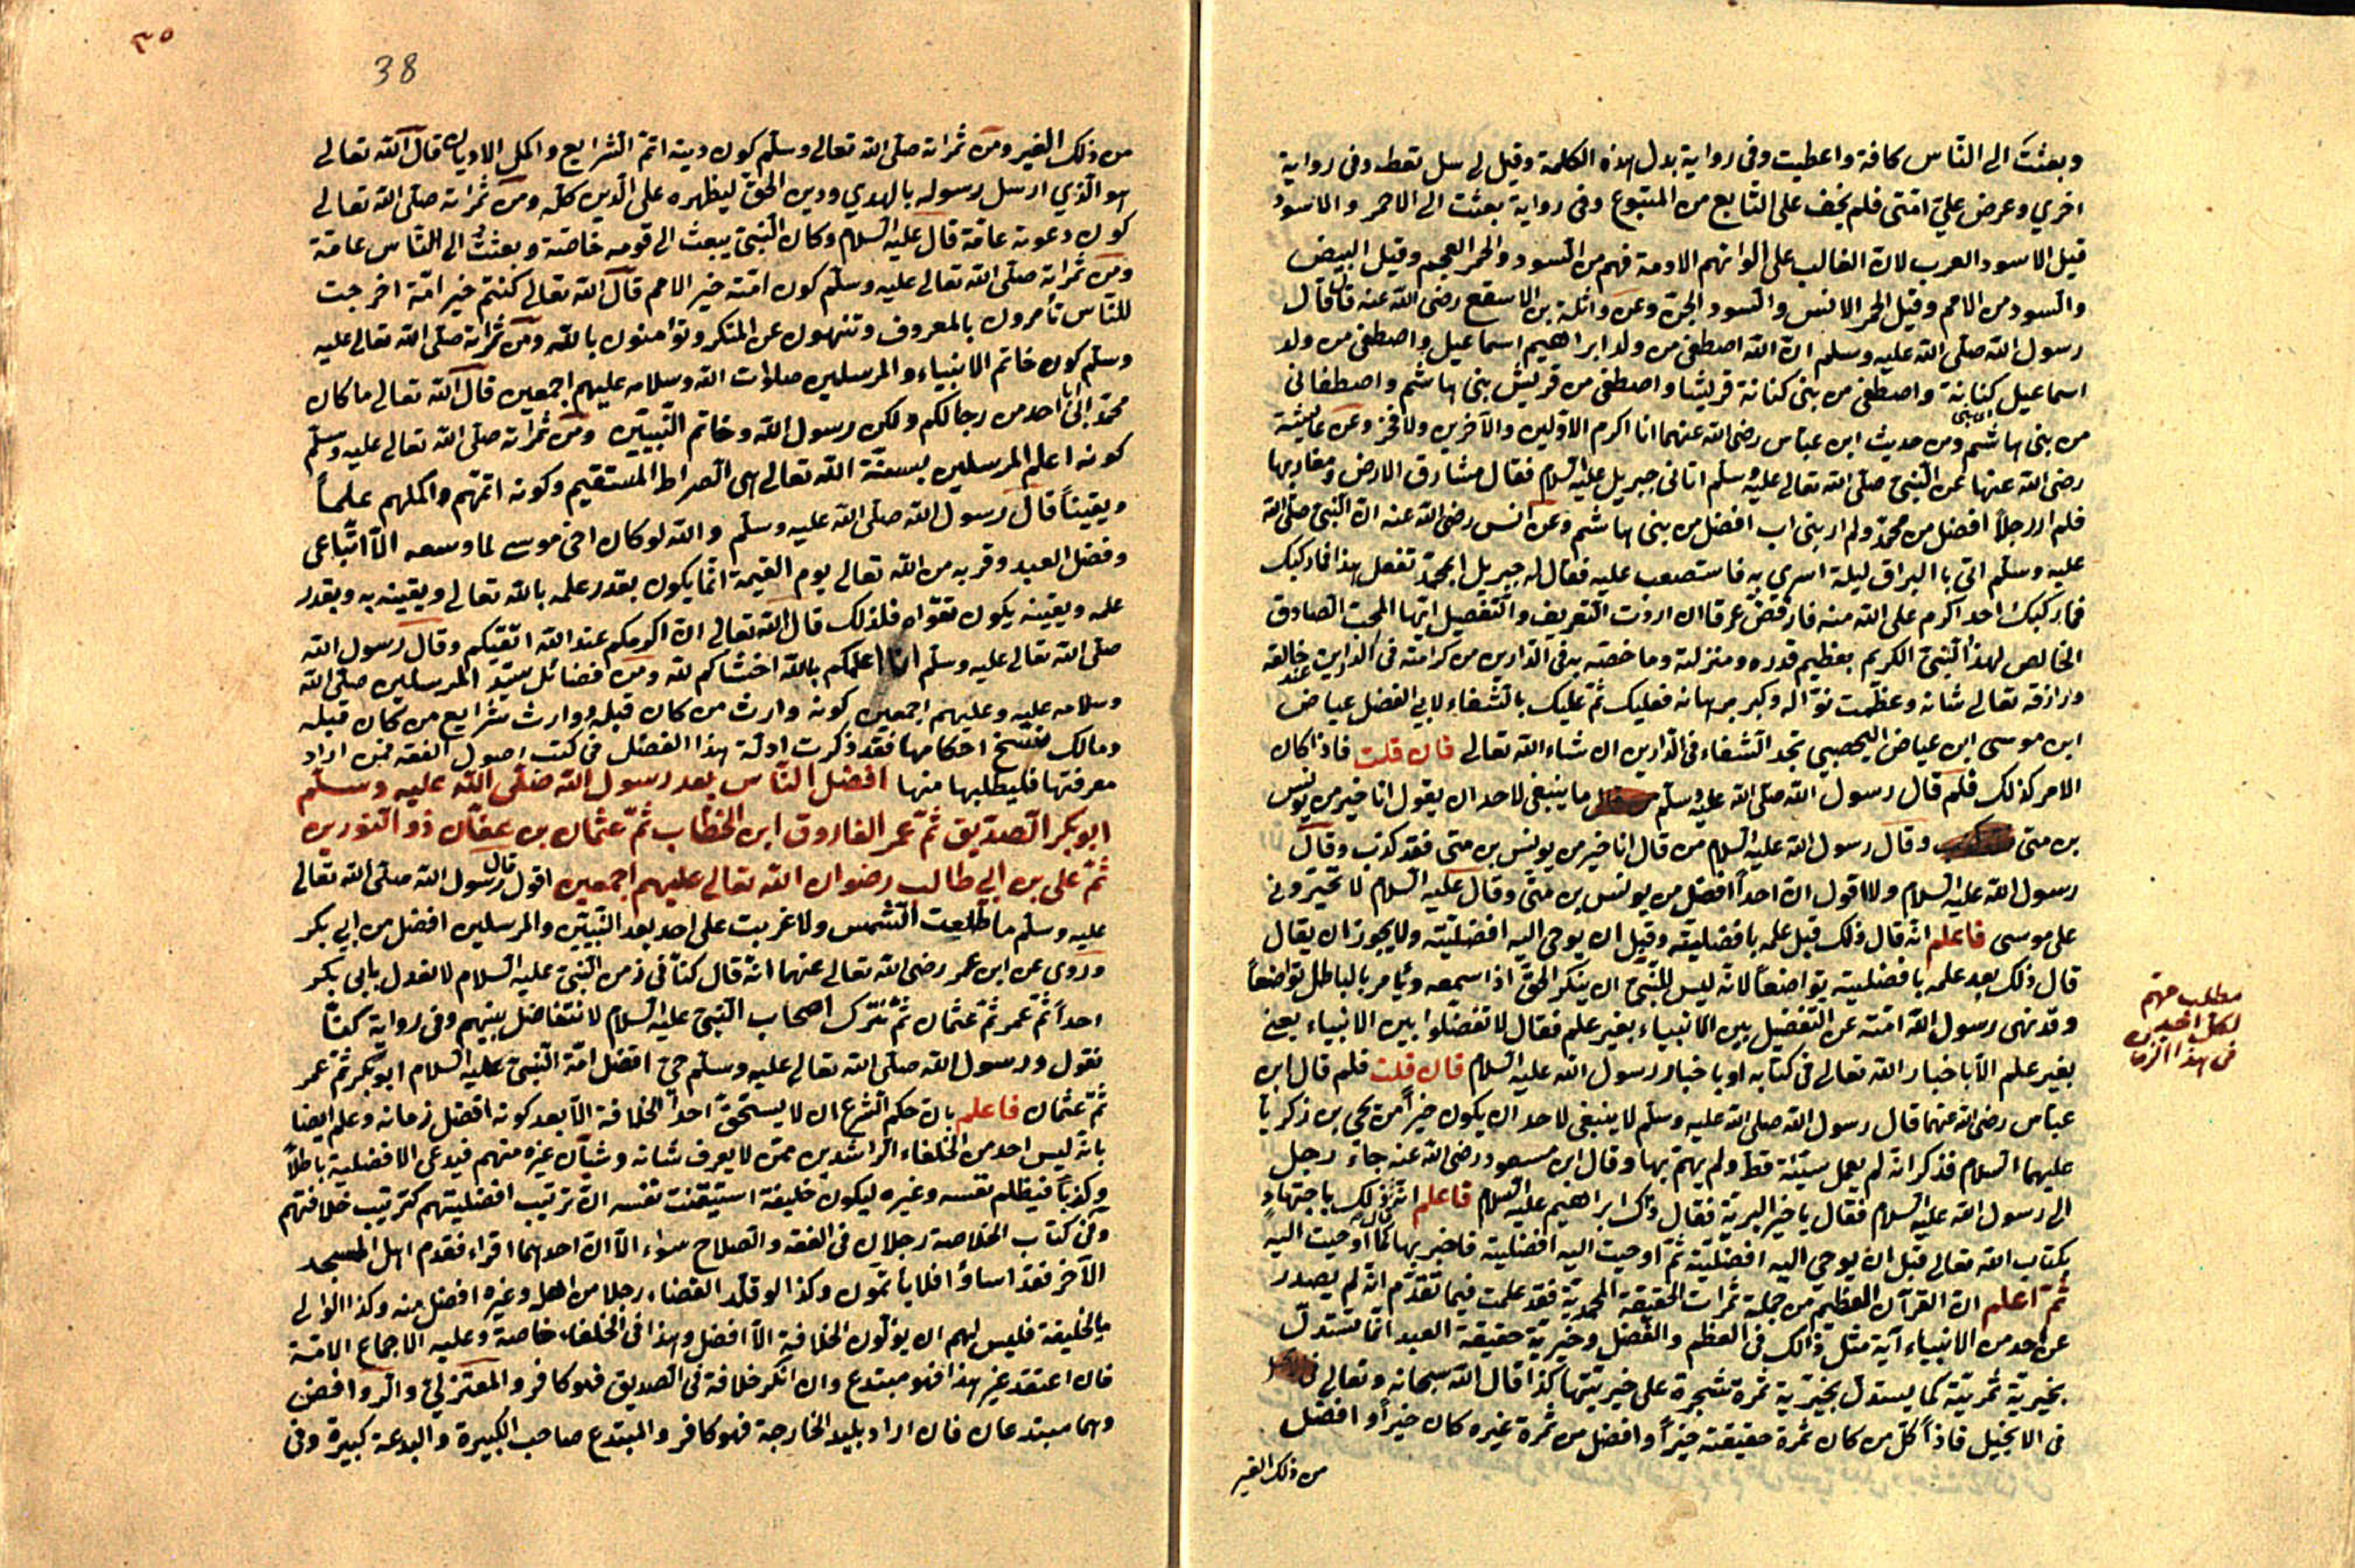 وبعثت الى الناس كافة واعطيت وفى رواية بدل هذه الكلمة وقيل لى سل تعط وفى رواية
اخري وعرض علىّ امتى فلم يخف على التابع من المتبوع وفى رواية بعثت الى الاحمر والاسود
قيل الاسود العرب لان الغالب على الوانهم الادمة فهم من السود والحمر العجم وقيل البيض
والسود من الامم وقيل الحمر الانس والسود الجن وعن واثلة بن الاسقع رضى الله عنه قال قال
رسول الله صلى الله عليه وسلم ان الله اصطفى من ولد ابراهيم اسماعيل واصطفى من ولد
اسماعيل كنانة واصطفى من بنى كنانة قريشا واصطفى من قريش بنى هاشم واصطفانى
من بنى هاشم ومن حديث ابن عباس رضى الله عنهما انا اكرم الاولين والآخرين ولا فخر وعن عايشة
رضى الله عنها عن النبى صلى الله تعالى عليه وسلم اتانى جبريل عليه السلام فقال مشارق الارض ومغاربها
فلم ار رجلاً افضل من محمد ولم ار بنى اب افضل من بنى هاشم وعن انس رضى الله عنه ان النبى صلى الله
عليه وسلم اتى باالبراق ليلة اسري به فاستصعب عليه فقال له جبريل ابمحمد تفعل هذا فما ركبك
فما ركبك احد اكرم على الله منه فارفض عرقا ان اردت التعريف والتفصيل ايها المحب الصادق
الخالص لهذا النبى الكريم بعظيم قدره ومنزلته وما خصته به فى الدارين من كرامته فى الدارين عند خالقه
ورازقه تعالى شانه وعظمت نواله وكبر برهانه فعليك ثم عليك بالشفاء لابي الفضل عياض
ابن موسى ابن عياض اليحصبي تجد الشفاء فى الدارين ان شاء الله تعالى فان قلت فاذا كان
الامر كذلك فلم قال رسول الله صلى الله عليه وسلم ما ينبغى لاحد ان يقول انا خير من يونس
بن متى وقال رسول الله عليه السلام من قال انا خير من يونس بن متى فقد كذب وقال
رسول الله عليه السلام ولا اقول ان احداً افضل من يونس بن متى وقال عليه السلام لا تخيرونى
على موسى فاعلم انه قال ذلك قبل علمه بافضليته وقبل ان يوحى اليه افضليته ولا يجوز ان يقال
قال ذلك بعد علمه بافضليته تواضعاً لانه ليس للنبى ان ينكر الحق اذا اسمعه ويأمر بالباطل تواضعاً
وقد نهى رسول الله امته عن التفضيل بين الانبياء بغير علم فقال لا تفضلوا بين الانبياء يعنى
بغير علم الا باخبار الله تعالى فى كتابه او باخبار رسول الله عليه السلام فان قلت فلم قال ابن
عباس رضى الله عنهما قال رسول الله صلى الله عليه وسلم لا ينبغى لاحد ان يكون خيراً من يحى بن زكريا
عليهما السلام فذكر انه لم يعمل سيئة قط ولم يهم بها وقال ابن مسعود رضى الله عنه جاء رجل
الى رسول الله عليه السلام فقال يا خير البرية فقال ذاك ابراهيم عليه السلام فاعلم انه ذلك باجتهاد
بكتاب الله تعالى قبل ان يوحى اليه افضليته ثم اوحيت اليه افضليته فاخبر بها كما اوحيت اليه
ثم اعلم ان القرآن العظيم من جملة ثمرات الحقيقة المحمدية فقد علمت فيما تقدم انه لم يصدر
عن احد من الانبياء آية مثل ذالك فى العظم والفضل وخيرية حقيقة العبد انما تستدل
بخيرية ثمريته كما يستدل بخيرية ثمرة شجرة على خيريتها كذا قال الله سبحانه وتعالى
فى الانجيل فاذاً كل من كان ثمرة حقيقته خيراً وافضل من ثمرة غيره كان خيراً وافضل
من ذلك الغير
مطلب مهم
لكل احد
فى هذا الزمان
٣٥
38
من ذلك الغير ومن ثمراته صلى الله تعالى وسلم كون دينه اتم الشرايع واكمل الاديان قال الله تعالى
هو الذي ارسل رسوله بالهدي ودين الحق ليظهره على الدين كله ومن ثمراته صلى الله تعالى
كون دعوته عامة قال عليه السلام وكان النبى يبعث الى قومه خاصة وبعثت الى الناس عامة
ومن ثمراته صلى الله تعالى عليه وسلم كون امته خير الامم قال الله تعالى كنتم خير امة اخرجت
للناس تأمرون بالمعروف وتنهون عن المنكر وتؤامنون بالله ومن ثمراته صلى الله تعالى عليه
وسلم كون خاتم الانبياء والمرسلين صلاوات الله وسلامه عليهم اجمعين قال الله تعالى ما كان
محمد ابا احد من رجالكم ولكن رسول الله وخاتم النبيين ومن ثمراته صلى الله تعالى عليه وسلم
كونه اعلم المرسلين بسعة الله تعالى هى الصراط المستقيم وكونه اتمهم واكملهم علماً
ويقيناً قال رسول الله صلى الله عليه وسلم والله لو كان اخى موسى لما وسعه الا اتباعى
وفضل العبد وقربه من الله تعالى يوم القيمة انما يكون بقدر علمه بالله تعالى ويقينه به وبقدر
علمه ويقينه يكون تقواه فلذلك قال الله تعالى ان اكرمكم عند الله اتقيكم وقال رسول الله
صلى الله تعالى عليه وسلم انا اعلمكم بالله اخشاكم لله ومن فضائل سيد المرسلين صلى الله
وسلامه عليه وعليهم اجمعين كونه وارث من كان قبله ووارث شرايع من كان قبله
ومالك فنسخ احكامها فقد ذكرت ادلة هذا الفضل فى كتب اصول الفقه فمن اراد
معرفتها فليطلبها منها افضل الناس بعد رسول الله صلى الله عليه وسلم
ابوبكر الصديق ثم عمر الفاروق ابن الخطاب ثم عثمان بن عفان ذو النورين
ثم على بن ابي طالب رضوان الله تعالى عليهم اجمعين اقول قال رسول الله صلى الله تعالى
عليه وسلم ما طلعت الشمس ولا غربت على احد بعد النبيين والمرسلين افضل من ابي بكر
وروى عن ابن عمر رضى الله تعالى عنهما انه قال كنا فى زمن النبى عليه السلام لا نعدل بابى بكر
احداً ثم عمر ثم عثمان ثم نترك اصحاب النبى عليه السلام لا نتفاضل بينهم وفى رواية كنا
نقول ورسول الله صلى الله تعالى عليه وسلم حى افضل امة النبى عليه السلام ابوبكر ثم عمر
ثم عثمان فاعلم بان حكم الشرع ان لا يستحق احداً الخلافة الا بعد كونه افضل زمانه وعلم ايضا
بانه ليس احد من الخلفاء الراشدين ممن لا يعرف شانه وشأن غيره منهم فيدعى الافضلية باطلاً
وكذباً فيظلم نفسه وغيره ليكون خليفة استيقنت نفسه ان ترتيب افضليتهم كترتيب خلافتهم
وفى كتاب الخلاصة رجلان فى الفقه والصلاح سواء الا ان احدهما اقراء فقدم اهل المسجد
الآخر فقد اساؤا فلا يأثمون وكذا لو قلد القضاء رجلا من اهله وغيره افضل منه وكذا الوالى
مالخليفة فليس لهم ان يولون الخلافة الا افضل وهذا فى الخلفاء خاصة وعليه الاجماع الامة
فان اعتقد غير هذا فهو مبتدع وان انكر خلافة الصديق فهو كافر والمعتزلى والروافض
وهما مبتدعان فان اراد بليد الخارجة فهو كافر والمبتدع صاحب الكبيرة والبدعة كبيرة وفى